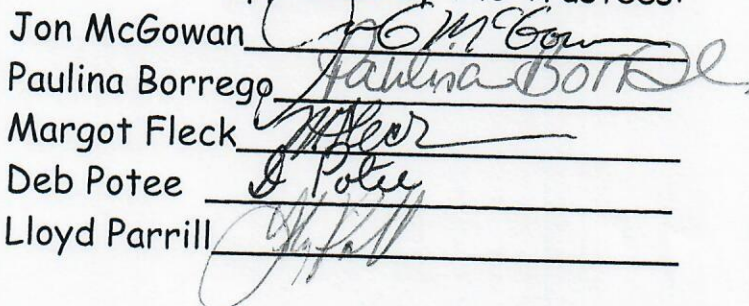 Trustees:
Jon McGowan Jon G McGowan
Paulina Borrego Paulina Borrego
Margot Fleck M Fleck
Deb Potee D Potee
Lloyd Parrill